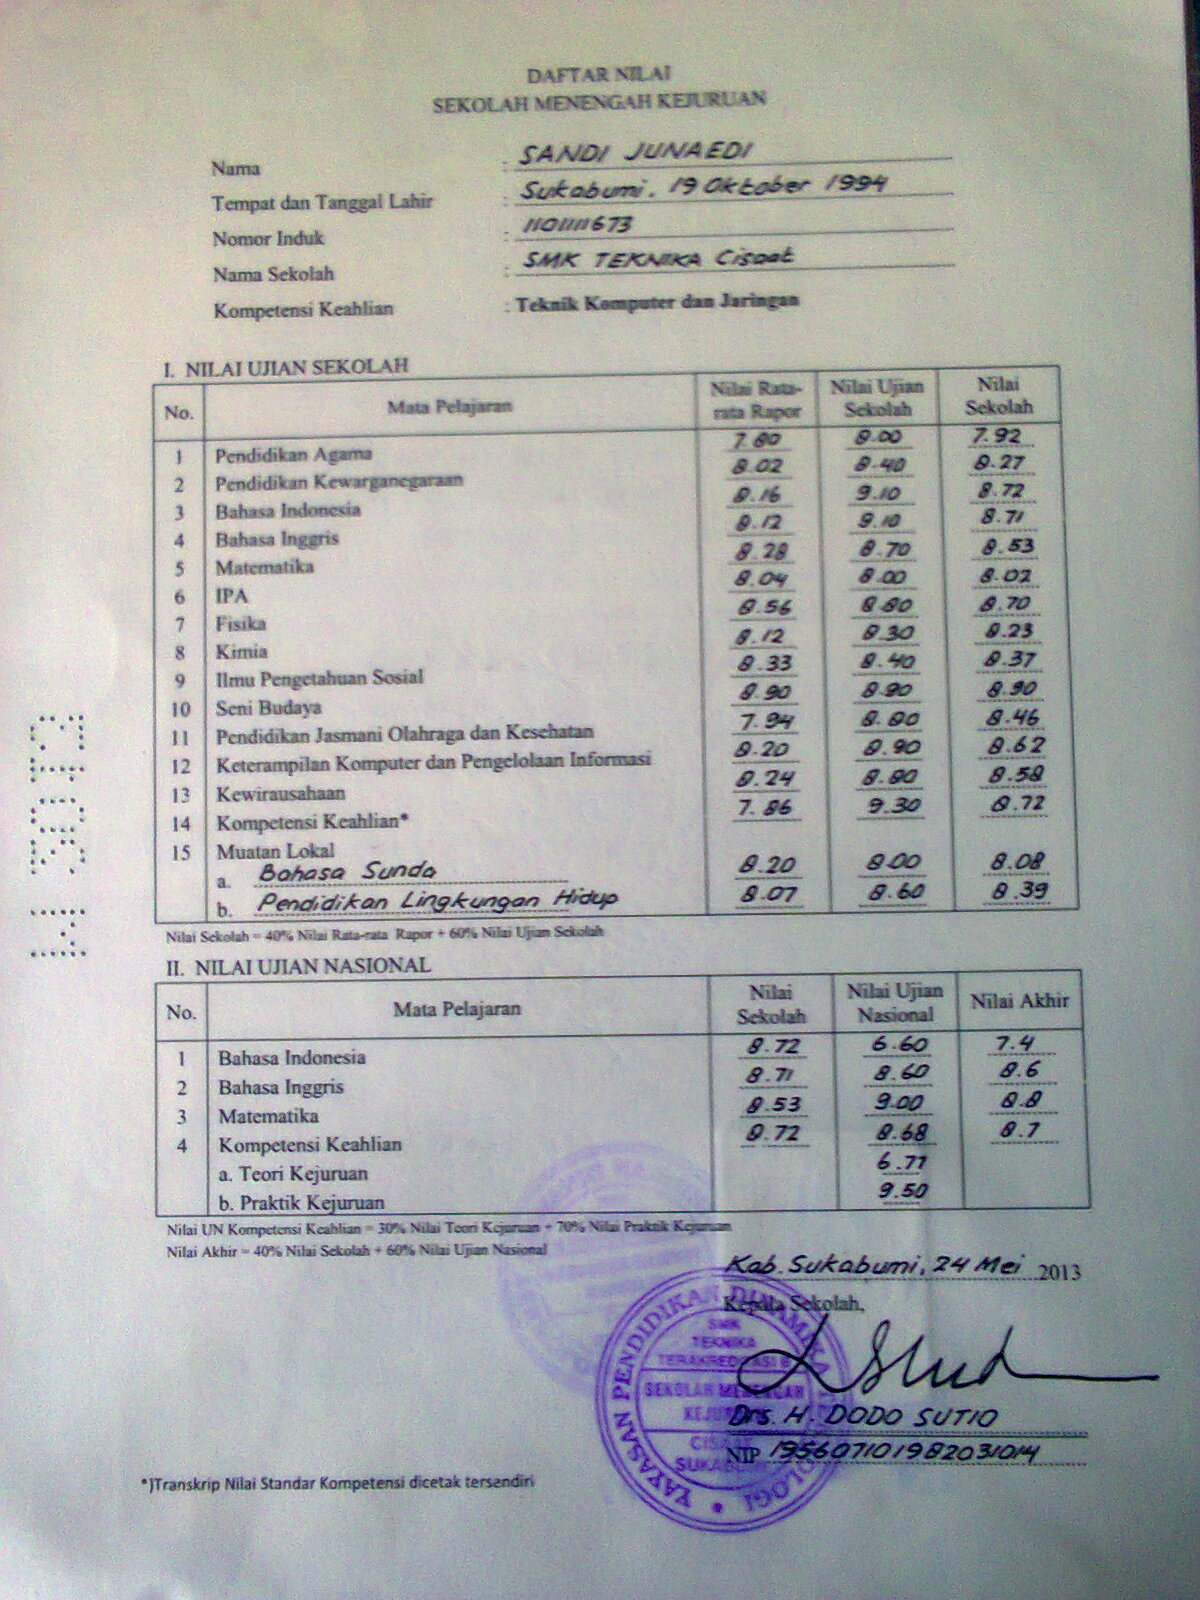 DAFTAR NILAI
SEKOLAH MENENGAH KEJURUAN
Nama : SANDI JUNAEDI
Tempat dan Tanggal Lahir : Sukabumi, 19 Oktober 1994
Nomor Induk : 1101111673
Nama Sekolah : SMK TEKNIKA Cisaat
Kompetensi Keahlian : Teknik Komputer dan Jaringan
I. NILAI UJIAN SEKOLAH
No. Mata Pelajaran Nilai Rata-rata Rapor Nilai Ujian Sekolah Nilai Sekolah
1 Pendidikan Agama 7.80 8.00 7.92
2 Pendidikan Kewarganegaraan 8.02 8.40 8.27
3 Bahasa Indonesia 8.16 9.10 8.72
4 Bahasa Inggris 8.12 9.10 8.71
5 Matematika 8.28 8.70 8.53
6 IPA 8.04 8.00 8.02
7 Fisika 8.56 8.80 8.70
8 Kimia 8.12 8.30 8.23
9 Ilmu Pengetahuan Sosial 8.33 8.40 8.37
10 Seni Budaya 8.90 8.90 8.90
11 Pendidikan Jasmani Olahraga dan Kesehatan 7.94 8.80 8.46
12 Keterampilan Komputer dan Pengelolaan Informasi 8.20 8.90 8.62
13 Kewirausahaan 8.24 8.80 8.58
14 Kompetensi Keahlian* 7.86 9.30 8.72
15 Muatan Lokal
a. Bahasa Sunda 8.20 8.00 8.08
b. Pendidikan Lingkungan Hidup 8.07 8.60 8.39
Nilai Sekolah = 40% Nilai Rata-rata Rapor + 60% Nilai Ujian Sekolah
II. NILAI UJIAN NASIONAL
No. Mata Pelajaran Nilai Sekolah Nilai Ujian Nasional Nilai Akhir
1 Bahasa Indonesia 8.72 6.60 7.4
2 Bahasa Inggris 8.71 8.60 8.6
3 Matematika 8.53 9.00 8.8
4 Kompetensi Keahlian 8.72 8.68 8.7
a. Teori Kejuruan 6.77
b. Praktik Kejuruan 9.50
Nilai UN Kompetensi Keahlian = 30% Nilai Teori Kejuruan + 70% Nilai Praktik Kejuruan
Nilai Akhir = 40% Nilai Sekolah + 60% Nilai Ujian Nasional
Kab. Sukabumi, 24 Mei 2013
Kepala Sekolah,
YAYASAN PENDIDIKAN DINAMIKA
SMK
TEKNIKA
TERAKREDITASI B
SEKOLAH MENENGAH
KEJURUAN
Drs. H. DODO SUTIO
NIP 195607101982031014
*)Transkrip Nilai Standar Kompetensi dicetak tersendiri